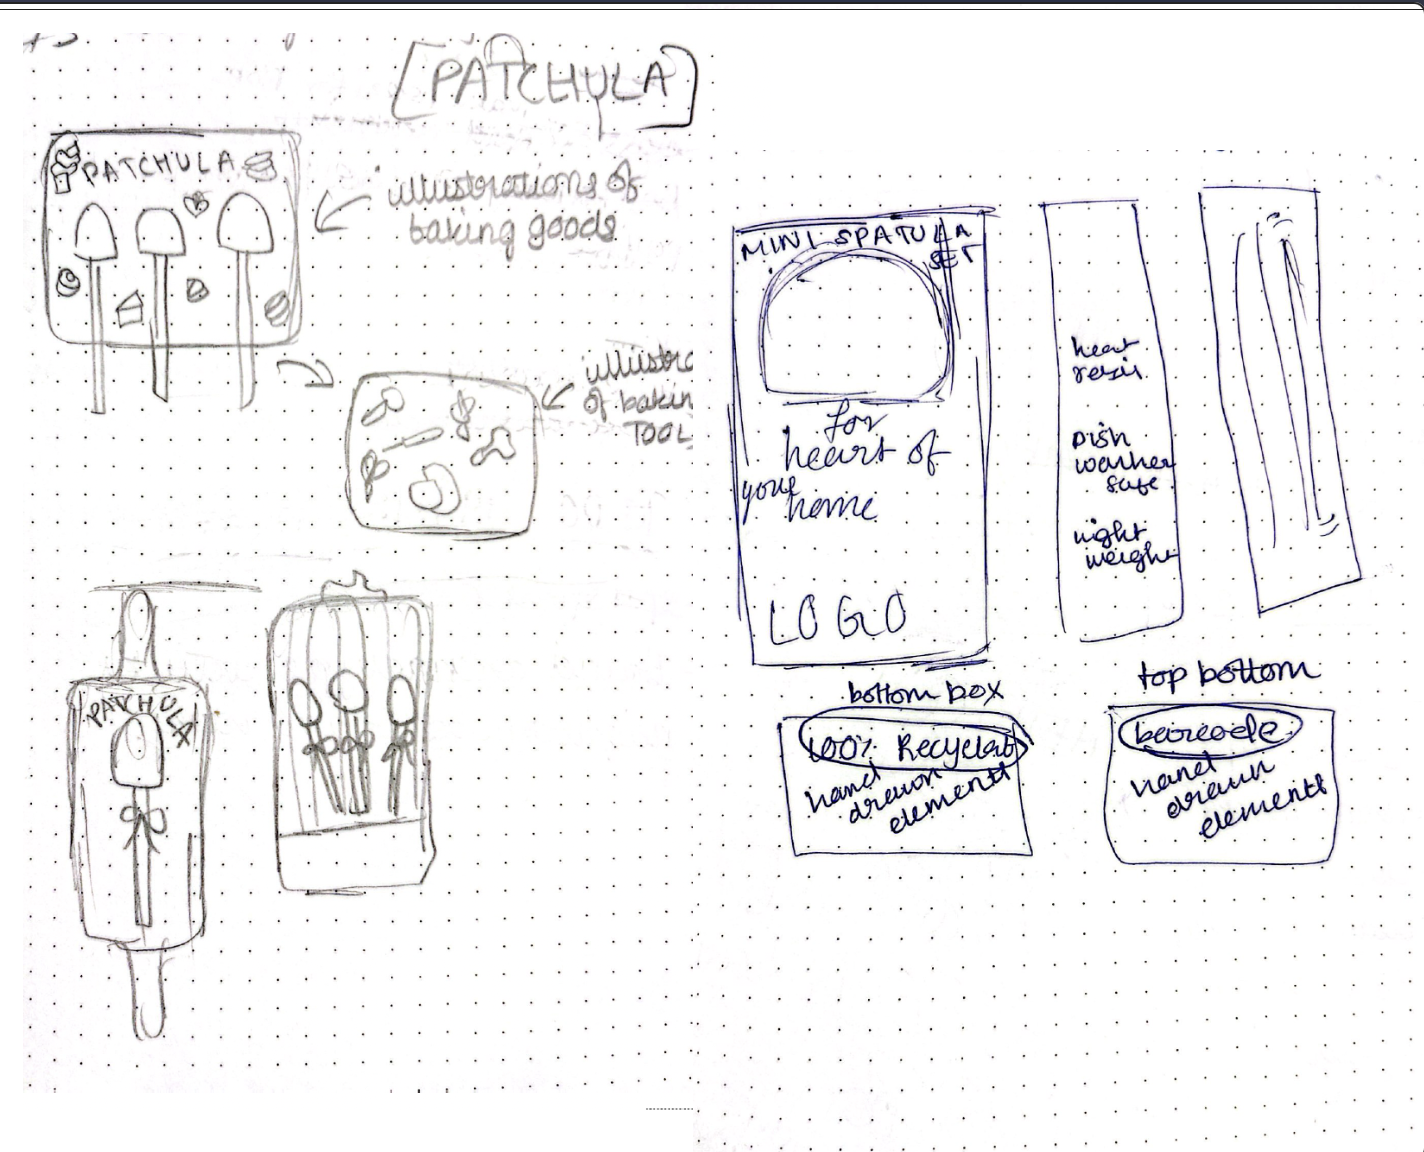 PATCHULA
PATCHULA
illustrations of
baking goods
illustra
of bakin
TOOL
PATCHULA
MINI SPATULA
SET
for
heart of
your
home
LOGO
heat
resis
Dish
washer
safe
weight
bottom box
100% Recyclab
hand
drawn
elements
top bottom
barcode
hand
drawn
elements